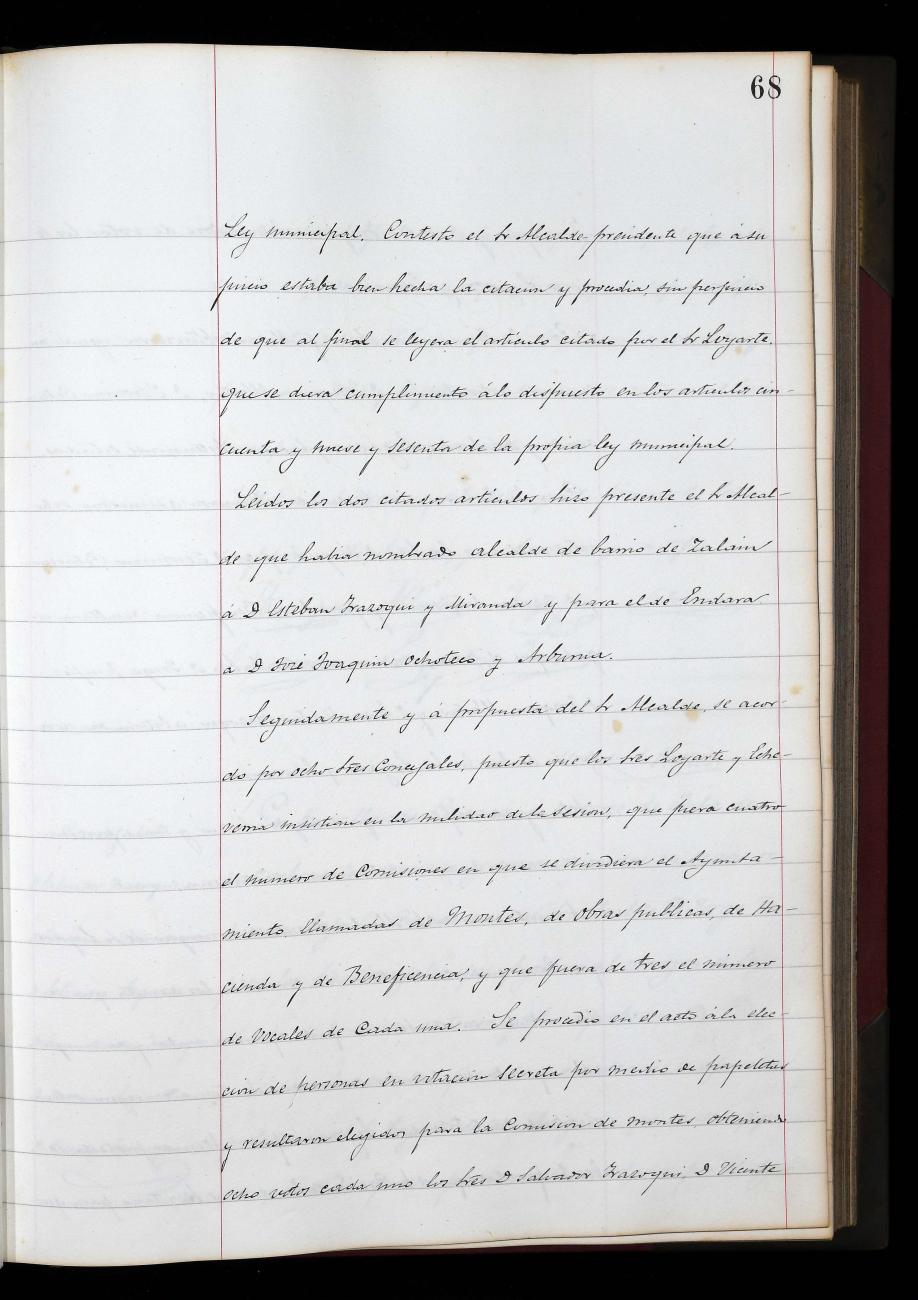 68
Ley municipal. Contesto el Sr Alcalde presidente que á su
juicio estaba bien hecha la citacion y procedia, sin perjuicio
de que al final se leyera el artículo citado por el Sr Loyarte,
que se diera cumplimiento á lo dispuesto en los articulos cin-
cuenta y nueve y sesenta de la propia ley municipal.
Leidos los dos citados artículos hizo presente el Sr Alcal-
de que habia nombrado alcalde de barrio de Zalain
á D Esteban Irazoqui y Miranda y para el de Endara
a D José Joaquin Ochoteco y
Segundamente y á propuesta del Sr Alcalde, se acor-
do por ocho Sres Concejales, puesto que los Sres Loyarte y Eche-
verria insistian en la nulidad de la sesion, que fuera cuatro
el numero de Comisiones en que se dividiera el Ayunta-
miento llamadas de Montes, de Obras publicas, de Ha-
cienda y de Beneficencia, y que fuera de tres el número
de Vocales de Cada una. Se procedio en el acto á la elec-
cion de personas en votacion secreta por medio de papeletas
y resultaron elegidos para la Comision de montes, obteniendo
ocho votos cada uno los Sres D Salvador Irazoqui, D Vicente